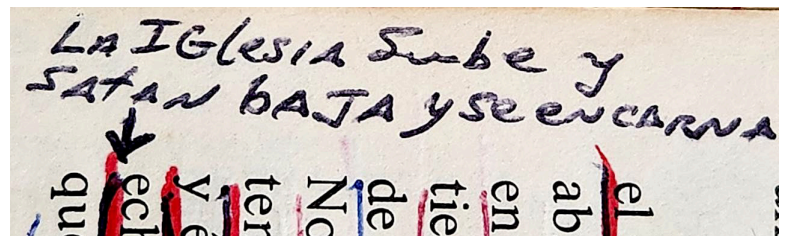 La IGlesia Sube y
Satan bAJA y se encarna
el
ab
en
tie
de
No
ter
y é
ech
que